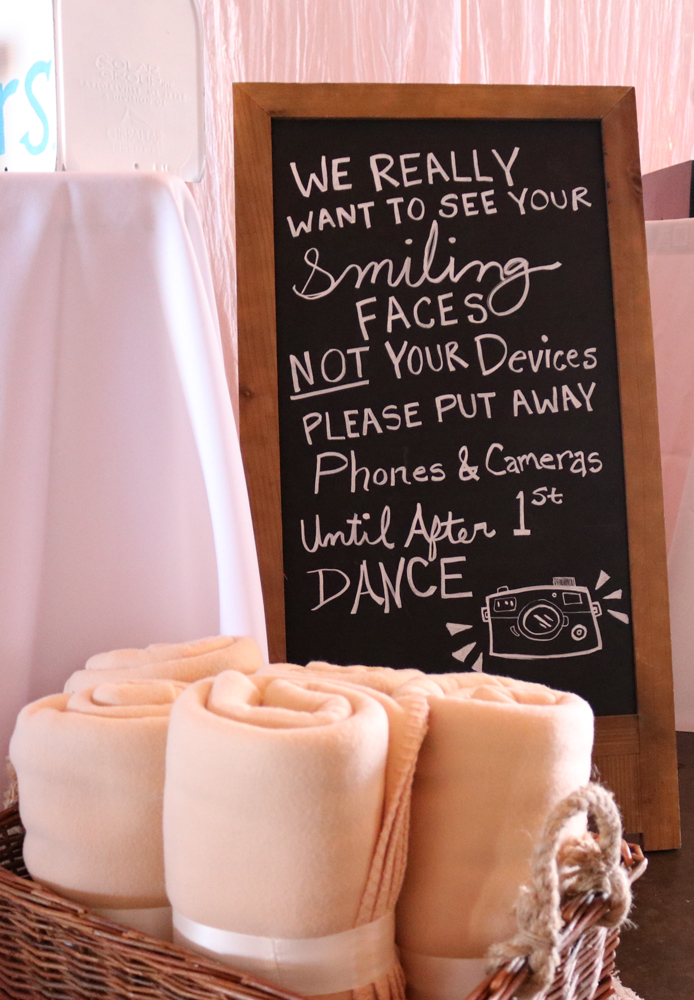 rs
WE REALLY
WANT TO SEE YOUR
Smiling
FACES
NOT YOUR Devices
PLEASE PUT AWAY
Phones & Cameras
Until After 1st
DANCE